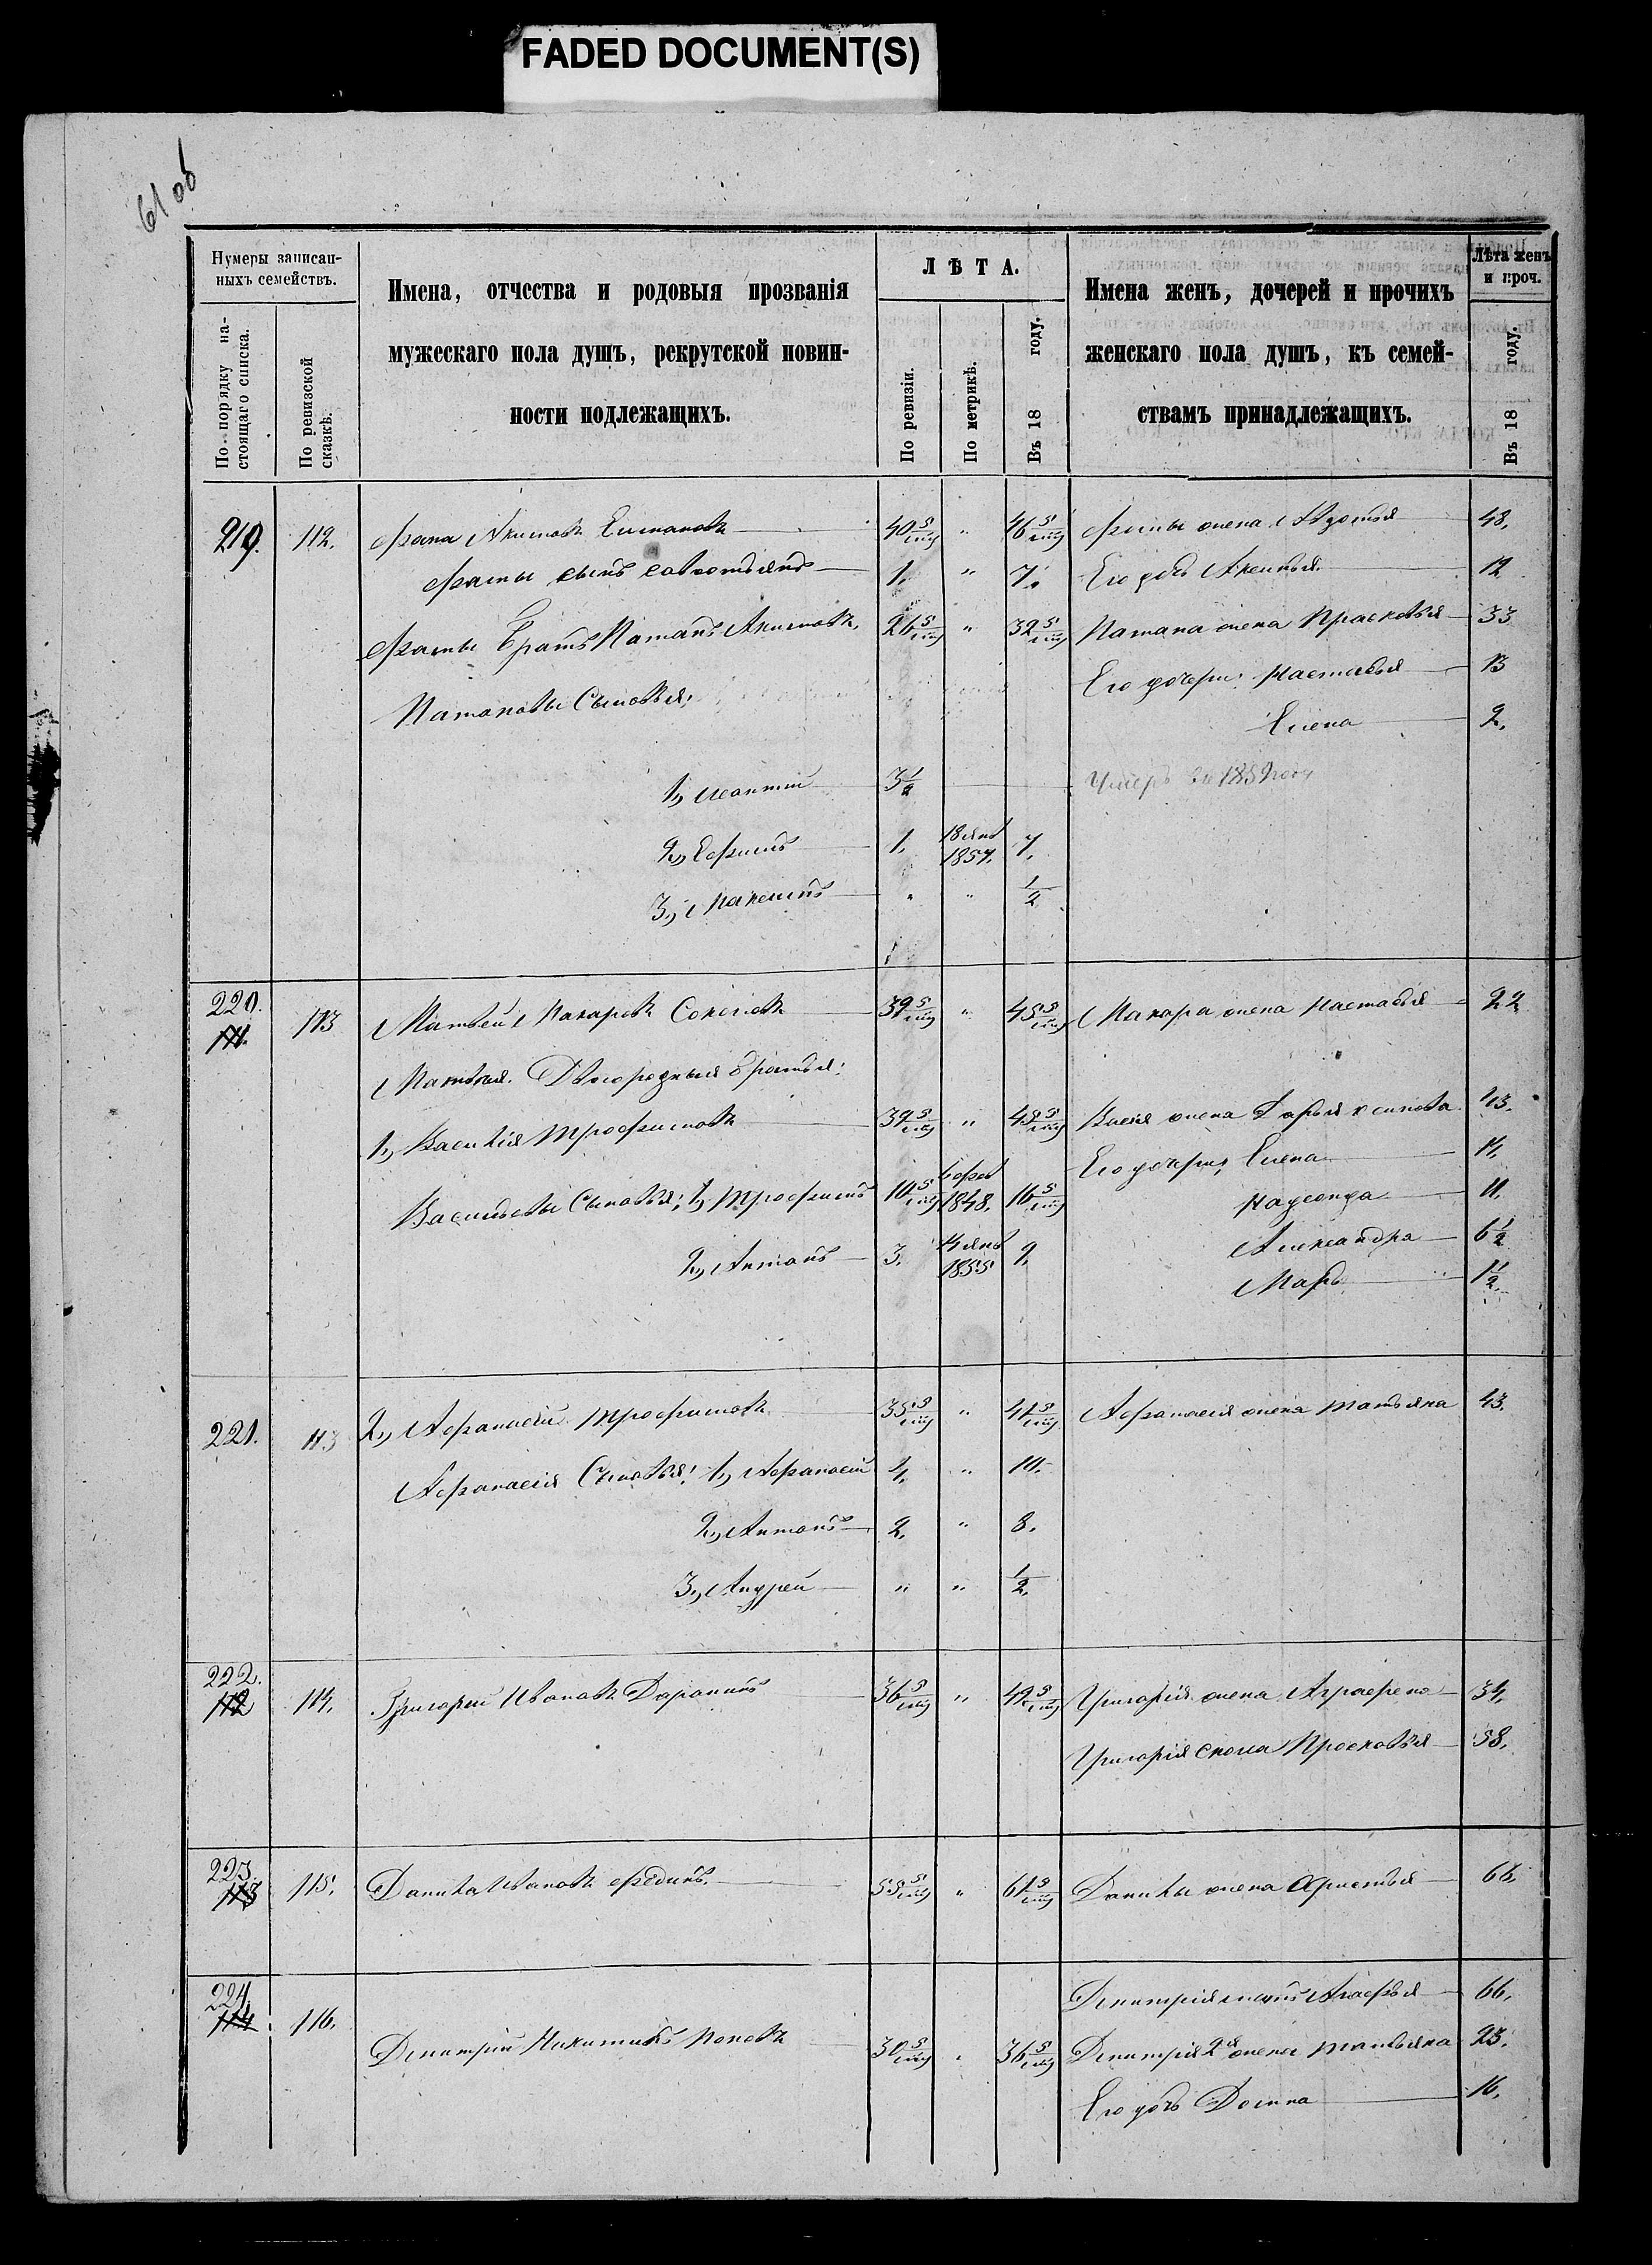 FADED DOCUMENT(S)
61 об
Нумеры записан-
ныхъ семействъ.
По порядку на-
стоящаго списка.
По ревизской
сказкѣ.
Имена, отчества и родовыя прозванія
мужескаго пола душъ, рекрутской повин-
ности подлежащихъ.
ЛѢТА.
По ревизіи.
По метрикѣ.
Въ 18 году.
Имена женъ, дочерей и прочихъ
женскаго пола душъ, къ семей-
ствамъ принадлежащихъ.
Лѣта женъ
и проч.
Въ 18 году.
219. 112. Фама Акимовъ 40 5/ " 46 5/ Фамы жена Авдотья 48.
Фамы сынъ 1. " 7. Его дочь Аксинья 12
Фамы Братъ Патапъ Акимовъ, 26 5/ " 32 5/ Патапа жена Прасковья 33
Его дочери: Настасья 13
Патаповы Сыновья:
Елена 2.
1., 3 1/2 Умеръ 1859 году
2., Ефимъ 1. 18 янв 1857. 7.
3., " " 1/2
220. 113 Матвей Макаровъ 39 5/ " 45 5/ Макара жена Настасья 22
Матвея Двоюродныя братья:
1., Василія Трофимовъ 39 5/ " 45 5/ жена Дарья 43.
Его дочери, Елена 14.
Васильевы Сыновья; 1., Трофимъ 10 5/ фев 1848. 16 5/ Надежда 11.
2., Антонъ 3. 14 янв 1855 9. Александра 6 1/2
Марь 1 1/2.
221. 113 2., Афанасій Трофимовъ 35 5/ " 41 5/ Афанасія жена Татьяна 43.
Афанасія Сыновья: 1., Афанасій 4. " 10.
2., Антонъ 2. " 8.
3., Андрей " " 1/2.
222. 112 114. Григорій Ивановъ 36 5/ " 42 5/ Григорія жена Аграфена 34.
Григорія Прасковья 58.
223. 113 115. Данила Ивановъ 55 5/ " 61 5/ Данилы жена 66.
224. 114 116. Дмитрія Агафья 66.
Дмитрій Никитинъ Поповъ 30 5/ 36 5/ Дмитрія 2я жена Татьяна 23.
Его дочь Домна 16.